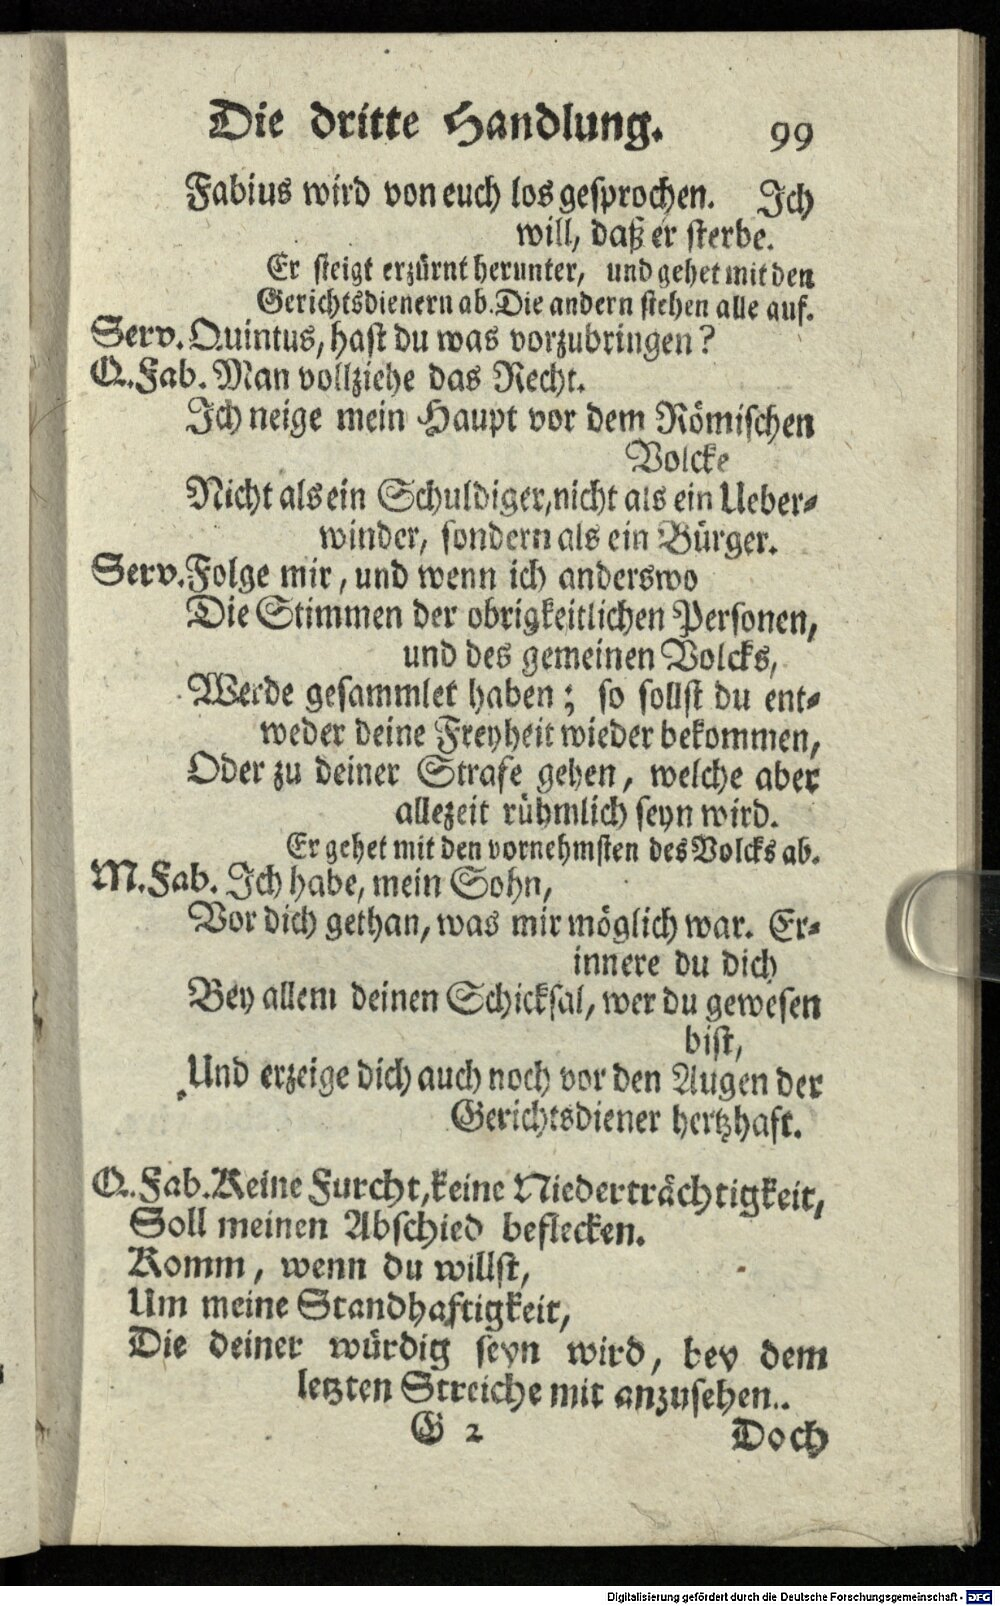 Die dritte Handlung. 99
Fabius wird von euch los gesprochen. Ich
will, daß er sterbe.
Er steigt erzürnt herunter, und gehet mit den
Gerichtsdienern ab. Die andern stehen alle auf.
Serv. Quintus, hast du was vorzubringen?
Q. Fab. Man vollziehe das Recht.
Ich neige mein Haupt vor dem Römischen
Volcke
Nicht als ein Schuldiger, nicht als ein Ueber-
winder, sondern als ein Bürger.
Serv. Folge mir, und wenn ich anderswo
Die Stimmen der obrigkeitlichen Personen,
und des gemeinen Volcks,
Werde gesammlet haben; so sollst du ent-
weder deine Freyheit wieder bekommen,
Oder zu deiner Strafe gehen, welche aber
allezeit rühmlich seyn wird.
Er gehet mit den vornehmsten des Volcks ab.
M. Fab. Ich habe, mein Sohn,
Vor dich gethan, was mir möglich war. Er-
innere du dich
Bey allem deinen Schicksal, wer du gewesen
bist,
Und erzeige dich auch noch vor den Augen der
Gerichtsdiener hertzhaft.
Q. Fab. Keine Furcht, keine Niederträchtigkeit,
Soll meinen Abschied beflecken.
Komm, wenn du willst,
Um meine Standhaftigkeit,
Die deiner würdig seyn wird, bey dem
letzten Streiche mit anzusehen..
G 2 Doch
Digitalisierung gefördert durch die Deutsche Forschungsgemeinschaft - DFG